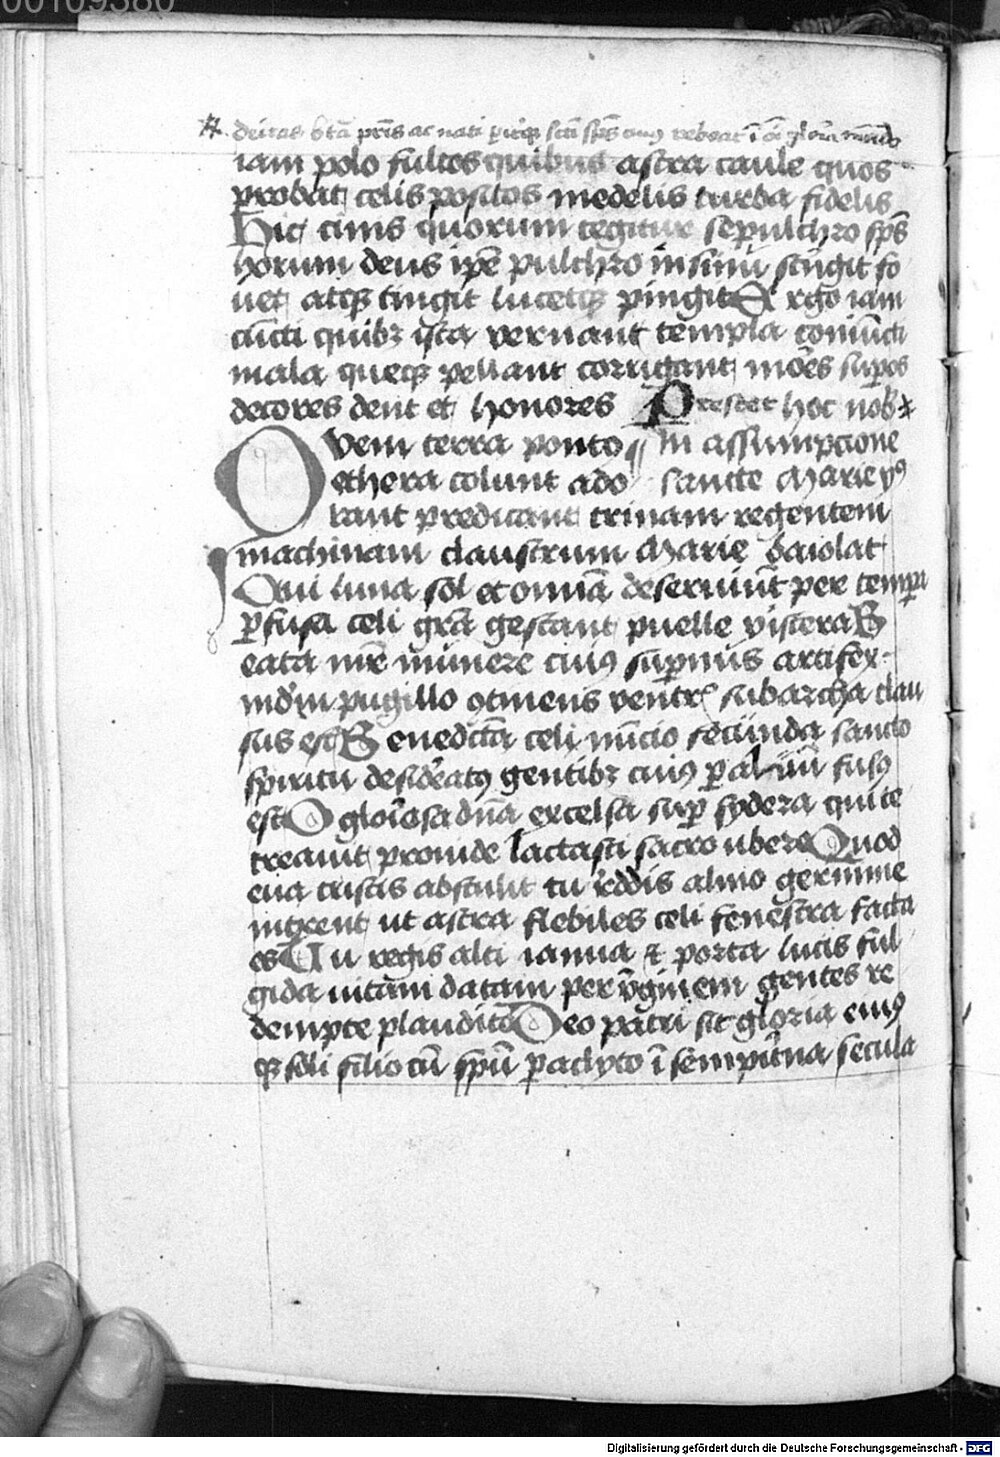 00109380
deitas bt̄a pr̄is ac nati pitq̄ sctī spūs cuiꝰ reboat ī oī glōria mūdo
iam polo fultos quibus astra caule quos
probat celis positos medelis turba fidelis
Hic cinis quorum tegitur sepulchro sps̄
horum deus ip̄e pulchro in sinu stīgit fo
uet atqꝫ tingit lucetqꝫ pingit Ergo iam
cūcti quibꝫ ista vernant templa coniūcti
mala queqꝫ pellant corrigant mōes sup̄os
decores dent et honores Prestet hoc nob̄
Quem terra ponto In assumpcione
ethera colunt ado sancte Marie yꝰ
rant predicant trinam regentem
machinam claustrum Marie baiolat
Qui luna sol et omnīa deseruiūt per tempa
ꝑfusa celi grā gestant puelle viscera B
eata mr̄e mūnere cuiꝰ sup̄nus artifex
mūdm̄ pugillo ꝯtinens ventrꝭ sub archa clau
sus est Benedicta celi nūcio fecūnda sancto
spiritu desid̄eatꝰ gentibꝫ cuiꝰ ꝑ aluū fusꝰ
est O glōiosa dn̄a excelsa sup̄ sydera qui te
creauit prouide lactasti sacro ubere Quod
eua tristis abstulit tu r̄ddis almo germine
intrent ut astra flebiles celi fenestra facta
es Tu regis alti ianua et porta lucis ful
gida uitam datam per v̄ginem gentes re
dempte plaudite Deo patri sit gloria eiusꝰ
qꝫ soli filio cū spū ꝑaclyto ī sempit̄na secula
Digitalisierung gefördert durch die Deutsche Forschungsgemeinschaft - DFG